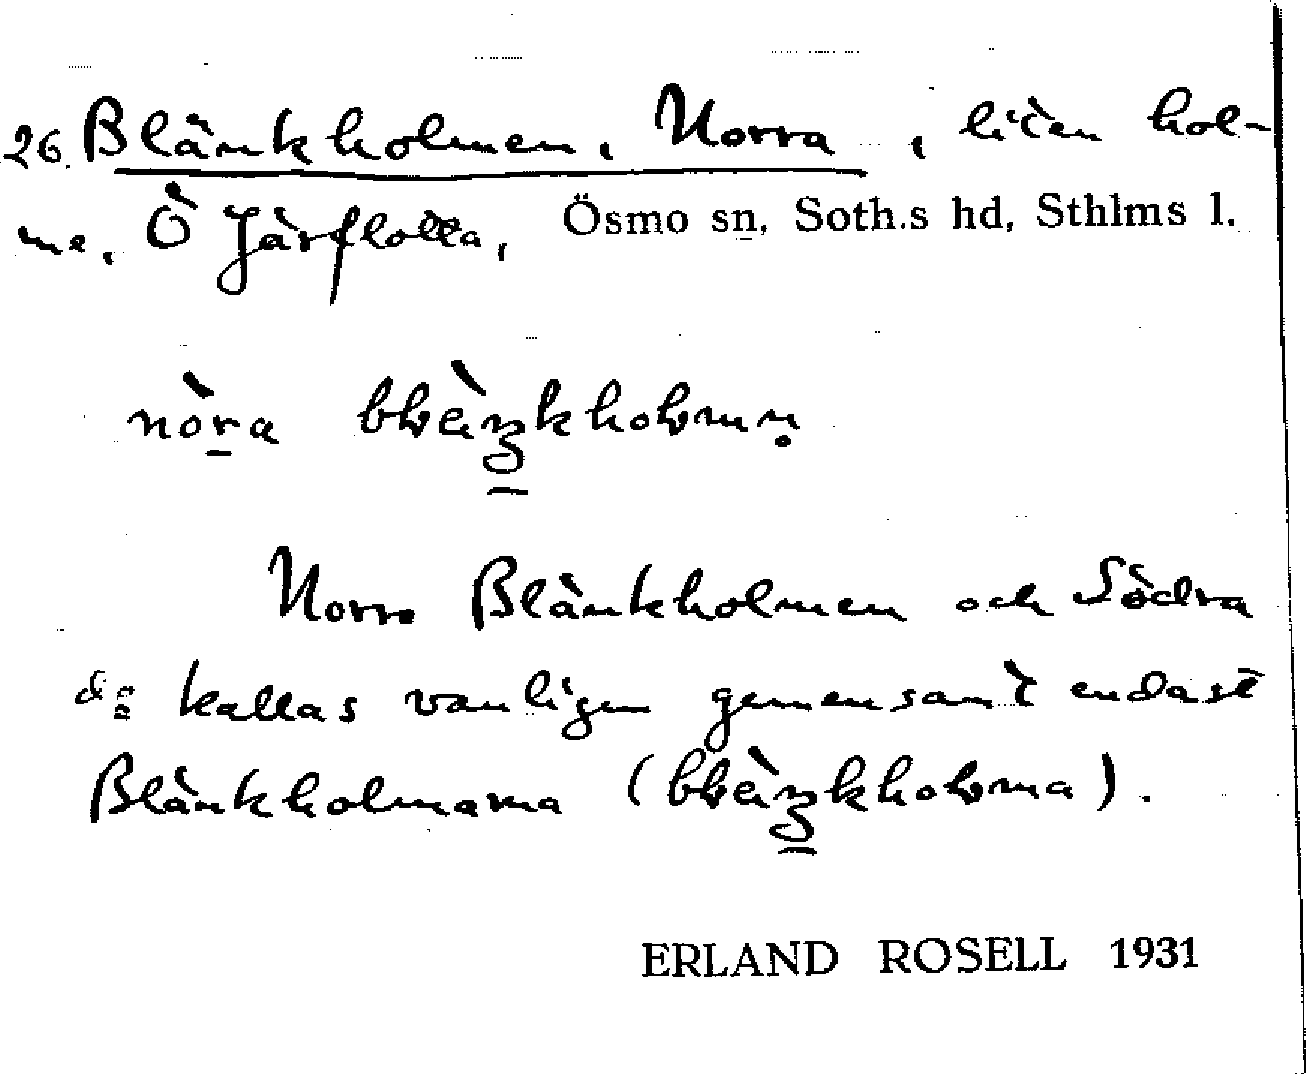 26. Blänkholmen, Norra, liten hol-
me, Ö Järflotta, Ösmo sn, Soth.s hd, Sthlms l.
nò̀ra
Norra Blänkholmen och Södra
d:o kallas vanligen gemensamt endast
Blänkholmarna
ERLAND ROSELL 1931